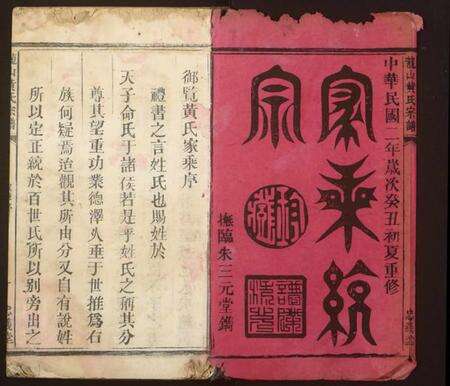 龍山黃氏宗譜
中華民國二年歲次癸丑初夏重修
家乘統
宗
撫臨朱三元堂鐫
忠義堂
御覽黃氏家乘序
禮書之言姓氏也賜姓於
天子命氏于諸侯若是乎姓氏之稱其分
尊其望重功業德澤久垂于世推為右
族何疑焉迨觀其所由分又自有說姓
所以定正統於百世氏所以別旁出之
龍山黃氏宗譜
忠義堂